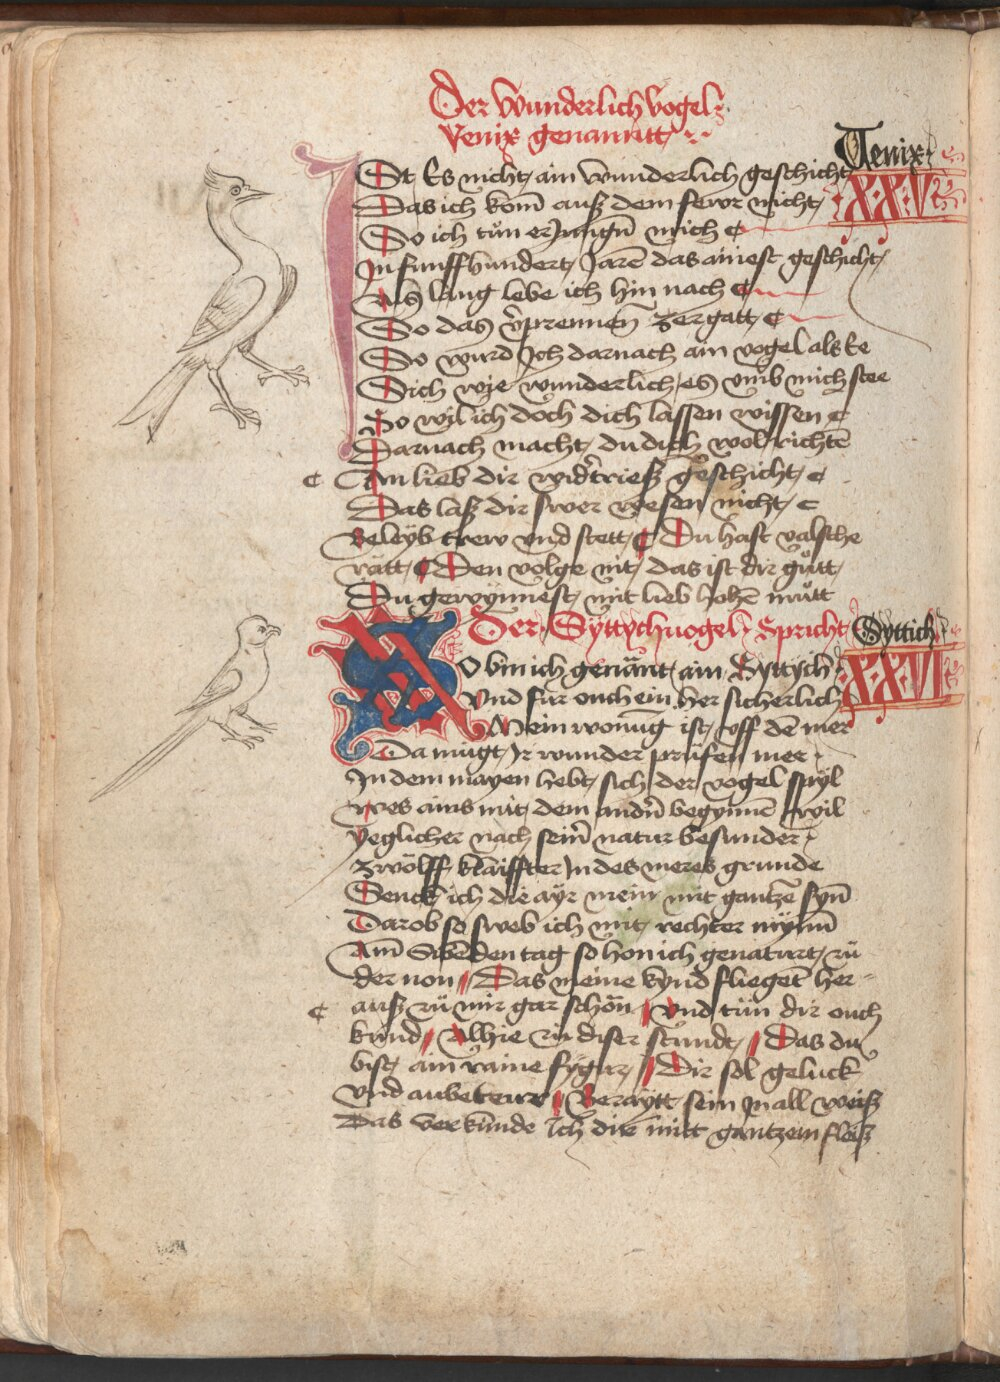 Der wunderlich vogel
Venix genanntt
Venix
XXV
Ist Es nicht ain wunderlich geschicht
Das ich kom̄ auß dem fewr nicht
So ich tůn erJungn̄ mich
In funffhundert Jarē das ainest geschicht
Als lang lebe ich hin nach
So das v̉prennen zergatt
So wurd Ich darnach ain vogel als Ee
Sich wje wunderlich es vmb mich stee
So wil ich doch dich lassen wissen
Darnach macht du dich wol richtē
An lieb dir widr̄trieß geschicht
Das laß dir swer wesen nicht
Beleyb trew vnd stett Du hast valsche
rätt Den volge nit das ist dir gůtt
Du gewynnest mit lieb hohē můtt
Der Syttychuogel Spricht
Syttich
XXVI
So bin ich genänt ain Syttych
Vnd fur ouch ein her sicherlich
Mein wonūg ist vff dē mer
Da mugt Ir wunder prüfen mer
In dem mayen hebt sich der vogel spyl
Wes ains mit dem andn̄ begynnē wil
yeglicher nach sein̄ natur besunder
Zwölff klaiffter In des meres grunde
Senck ich die ayr mein mit gantzē syn̄
Darob so sweb ich mit rechter mynn̄
Am̄ Sibēden tag so hon ich genaturt zů
der non Das meine kynd fliegēt her
auß zů mir gar schön Vnd tün dir ouch
kund Alhie zu diser stundt Das du
bist ain raine fygur Dir sol geluck
vnd aubeteur Beraytt sein In all weiß
Das verkünde Ich dir mitt gantzem fleiß